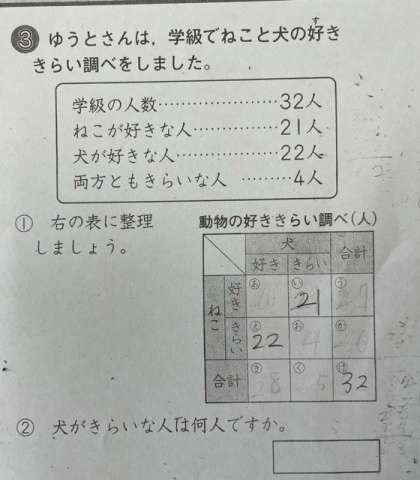 ③ ゆうとさんは，学級でねこと犬の好き
す
きらい調べをしました。
学級の人数…………………32人
ねこが好きな人……………21人
犬が好きな人………………22人
両方ともきらいな人 ………4人
① 右の表に整理
しましょう。
動物の好ききらい調べ(人)
犬 合計
好き きらい
ねこ 好き あ い 21 う
きらい え 22 お 4 か
合計 き く け 32
② 犬がきらいな人は何人ですか。